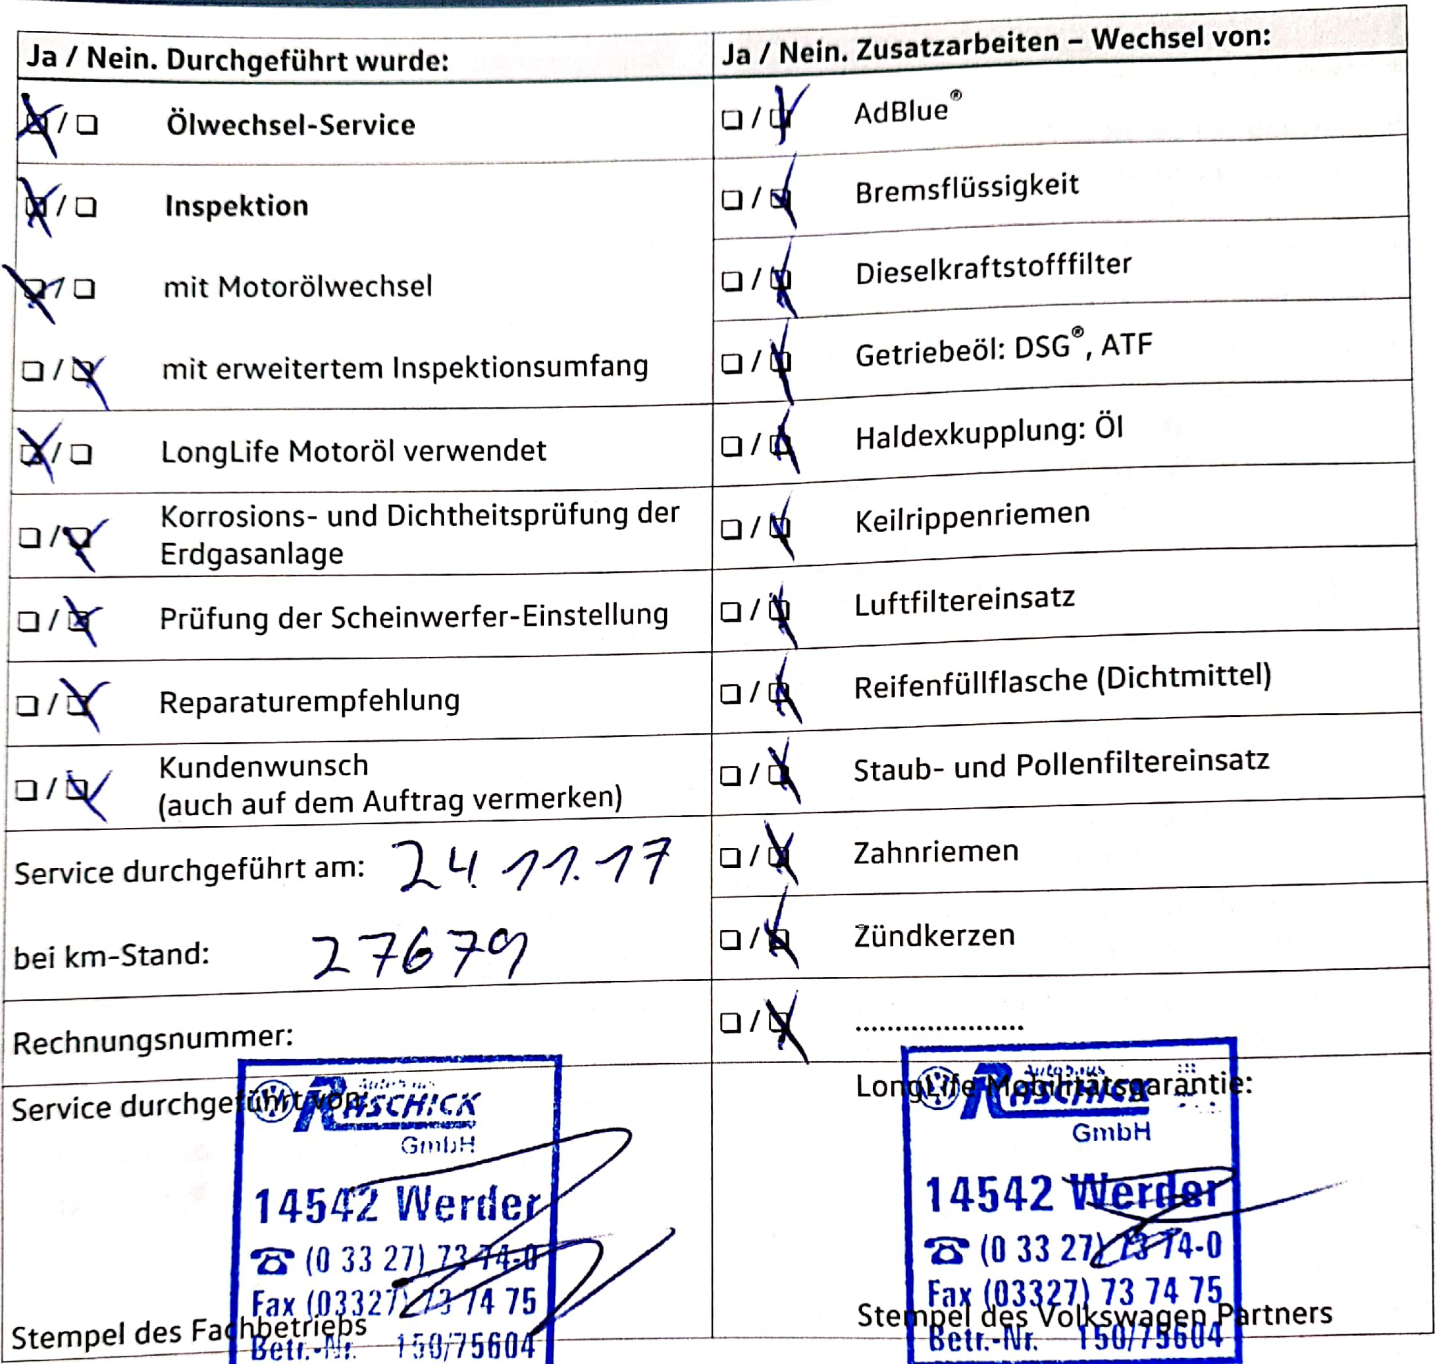 Ja / Nein. Durchgeführt wurde:
☒ / ☐ Ölwechsel-Service
☒ / ☐ Inspektion
☒ / ☐ mit Motorölwechsel
☐ / ☒ mit erweitertem Inspektionsumfang
☒ / ☐ LongLife Motoröl verwendet
☐ / ☒ Korrosions- und Dichtheitsprüfung der
Erdgasanlage
☐ / ☒ Prüfung der Scheinwerfer-Einstellung
☐ / ☒ Reparaturempfehlung
☐ / ☒ Kundenwunsch
(auch auf dem Auftrag vermerken)
Service durchgeführt am: 24.11.17
bei km-Stand: 27679
Rechnungsnummer:
Service durchgeführt von:
Autohaus
RASCHICK
GmbH
14542 Werder
☎ (0 33 27) 73 74-0
Fax (03327) 73 74 75
Betr.-Nr. 150/75604
Stempel des Fachbetriebs
Ja / Nein. Zusatzarbeiten – Wechsel von:
☐ / ☒ AdBlue®
☐ / ☒ Bremsflüssigkeit
☐ / ☒ Dieselkraftstofffilter
☐ / ☒ Getriebeöl: DSG®, ATF
☐ / ☒ Haldexkupplung: Öl
☐ / ☒ Keilrippenriemen
☐ / ☒ Luftfiltereinsatz
☐ / ☒ Reifenfüllflasche (Dichtmittel)
☐ / ☒ Staub- und Pollenfiltereinsatz
☐ / ☒ Zahnriemen
☐ / ☒ Zündkerzen
☐ / ☒ .....................
LongLife Mobilitätsgarantie:
Autohaus
RASCHICK
GmbH
14542 Werder
☎ (0 33 27) 73 74-0
Fax (03327) 73 74 75
Betr.-Nr. 150/75604
Stempel des Volkswagen Partners